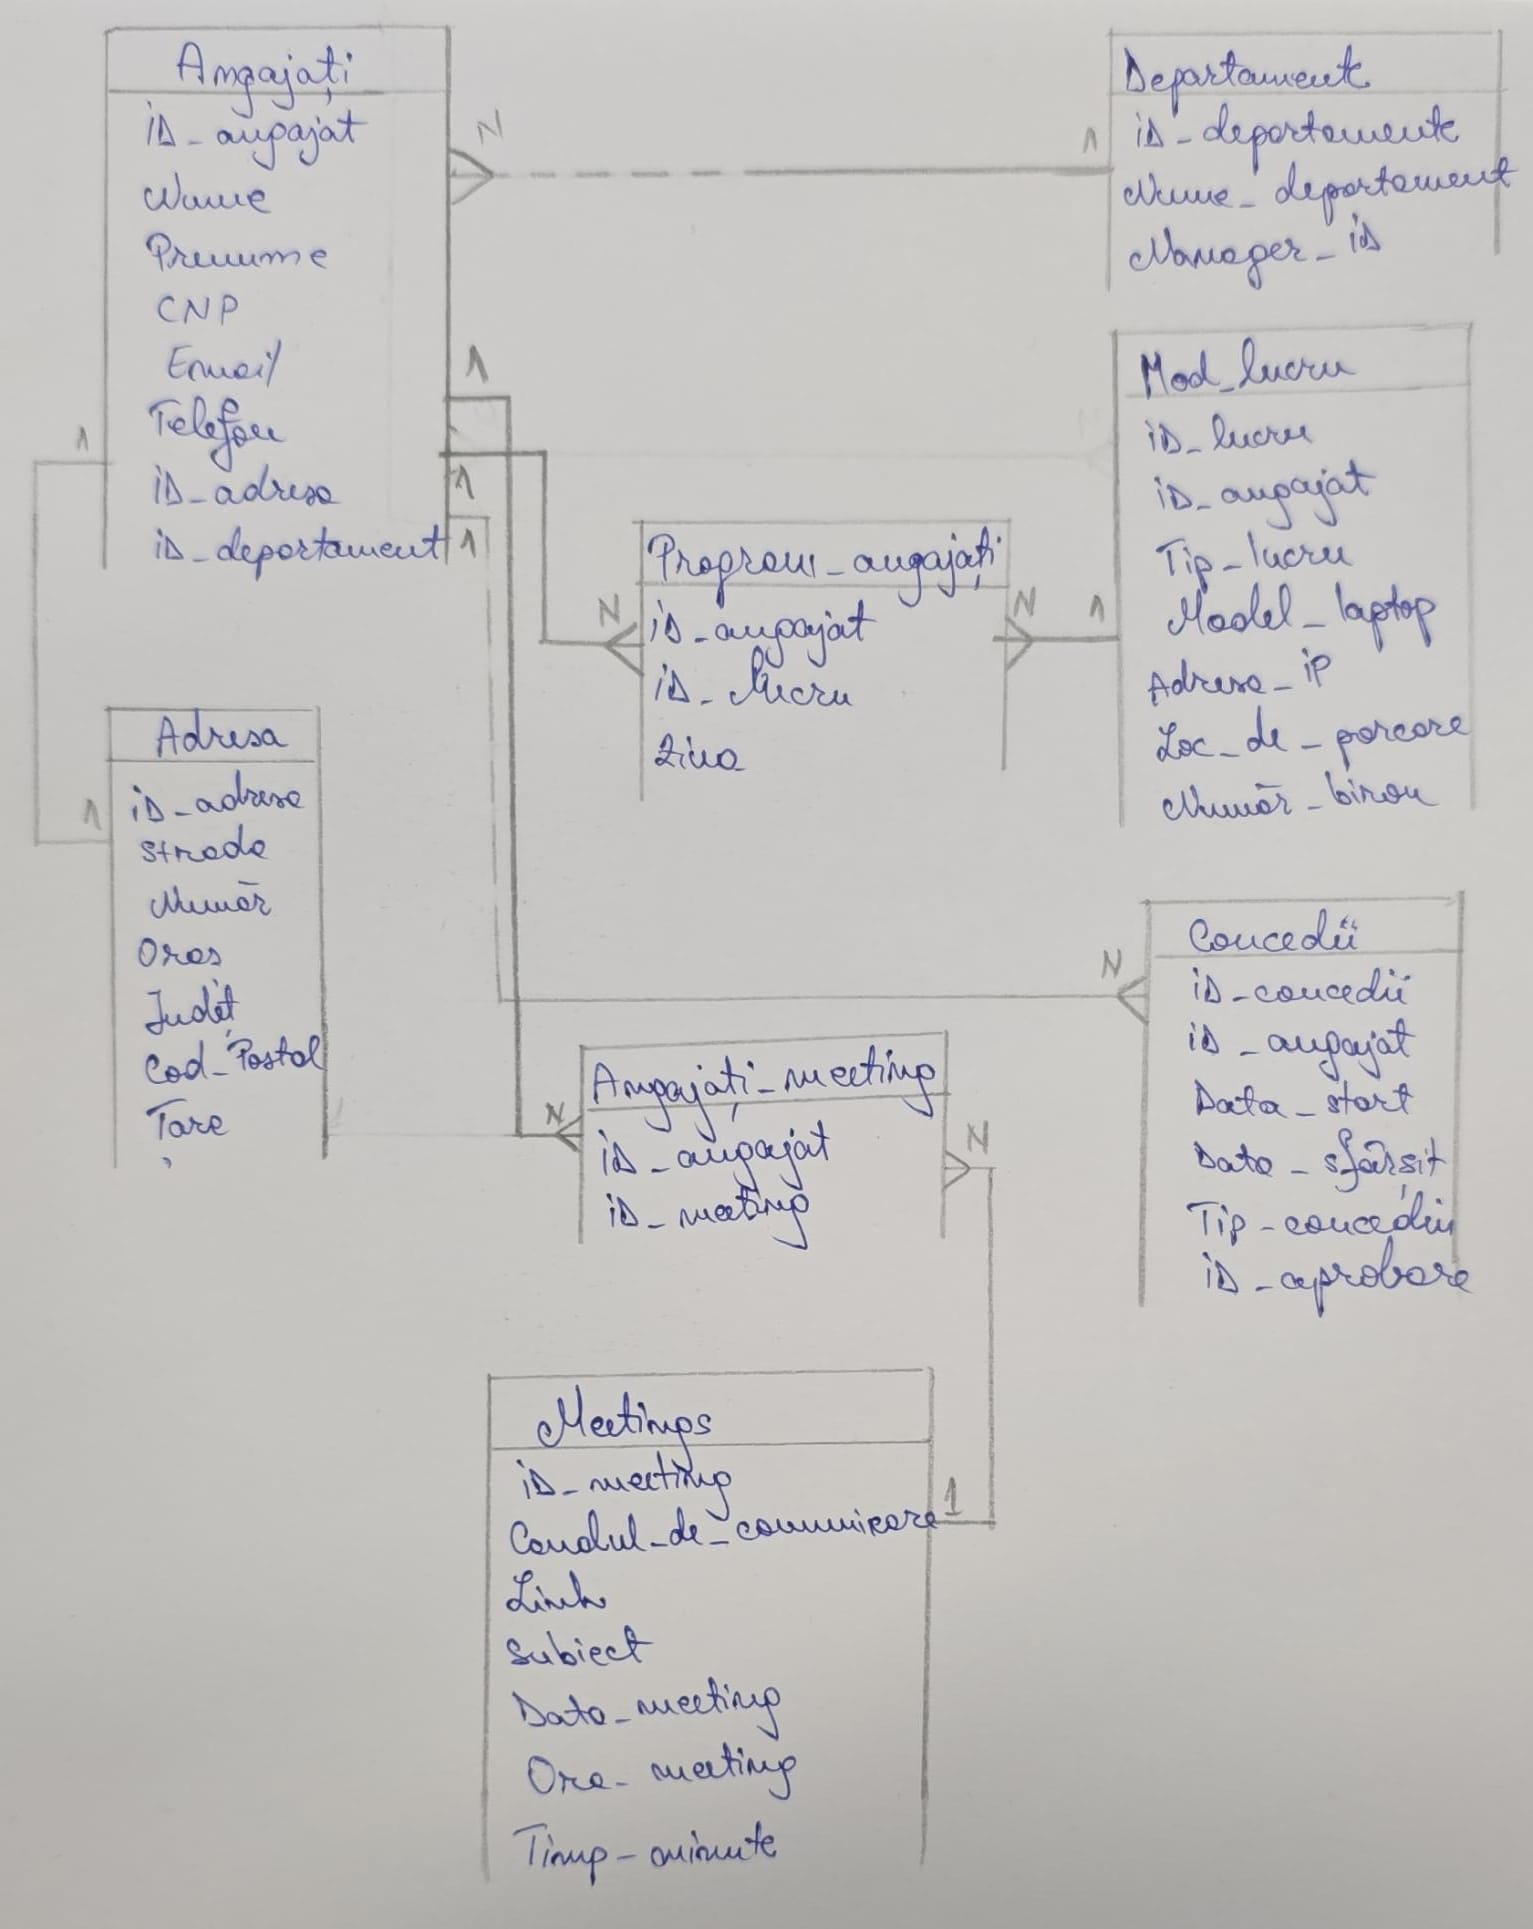 Angajați
iD_angajat
Nume
Prenume
CNP
Email
Telefon
iD_adresa
iD_departament
N
1
1
1
1
1
Departamente
iD_departamente
Nume_departament
Manager_iD
Mod_lucru
iD_lucru
iD_angajat
Tip_lucru
Model_laptop
Adresa_iP
Loc_de_parcare
Număr_birou
Program_angajați
iD_angajat
iD_lucru
Ziua
N
N
1
Adresa
iD_adresa
Strada
Număr
Oraș
Județ
Cod_Postal
Țara
1
Concedii
iD_concedii
iD_angajat
Data_start
Data_sfârșit
Tip_concediu
iD_aprobare
N
Angajați_meeting
iD_angajat
iD_meeting
N
N
Meetings
iD_meeting
Canalul_de_comunicare
Link
Subiect
Data_meeting
Ora_meeting
Timp_minute
1